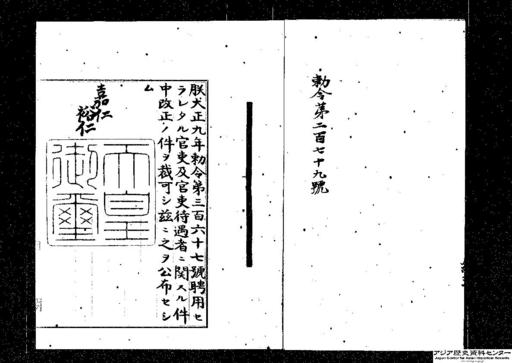 勅令第二百七十九號
朕大正九年勅令第三百六十七號聘用セ
ラレタル官吏及官吏待遇者ニ關スル件
中改正ノ件ヲ裁可シ茲ニ之ヲ公布セシ
ム
嘉仁
裕仁
天皇
御璽
アジア歴史資料センター
Japan Center for Asian Historical Records